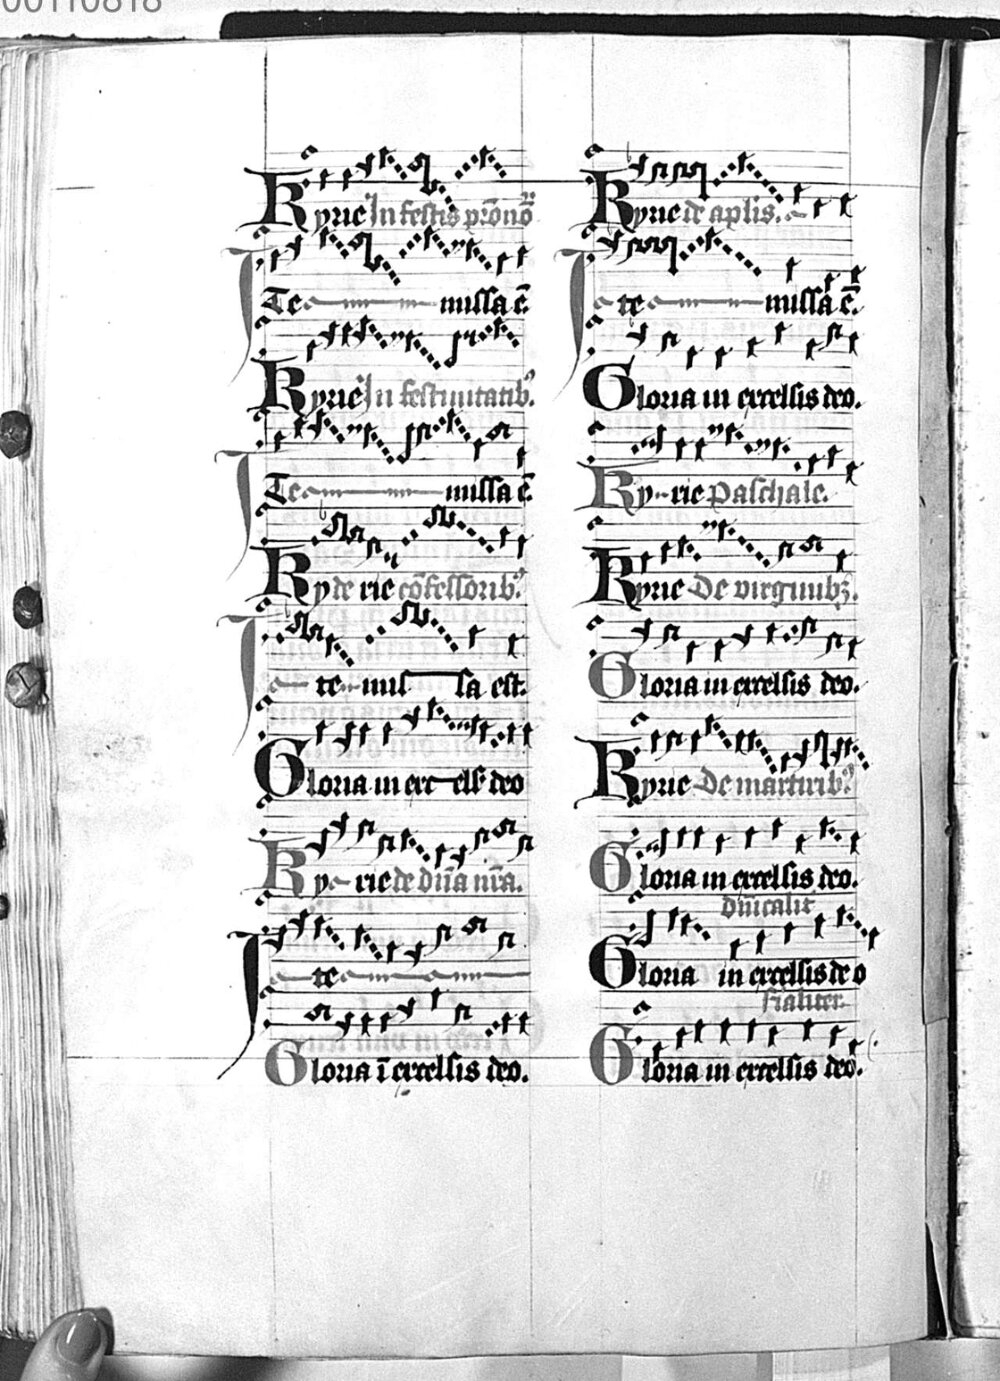 00110818
Kyrie In festis p̄rōnoꝝ
Ite missa ē
Kyrie In festiuitatibꝰ
Ite missa ē
Kyrie de cōfessoribꝰ
Ite missa est.
Gloria in excelsꝭ deo
Kyrie de dn̄a nr̄a.
Ite
Gloria ī excelsis deo.
Kyrie de aplis.
Ite missa ē.
Gloria in excelsis deo.
Kyrie Paschale.
Kyrie De virginibꝫ.
Gloria in excelsis deo.
Kyrie De martiribꝰ
Gloria in excelsis deo.
dn̄icalit
Gloria in excelsis deo
ferialiter.
Gloria in excelsis deo.